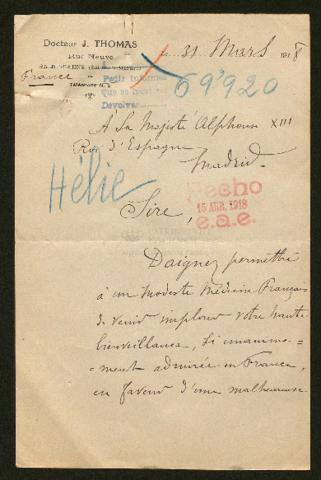 Docteur J. THOMAS
Rue Neuve
France
TÉLÉPHONE N.
31 Mars 1918
Pedir informes
Que se
Devolver
69'920
À Sa Majesté Alphonse XIII
Roi d'Espagne
Madrid.
Hélie
Fecho
15 ABR. 1918
e.a.e.
Sire,
Daignez permettre
à un modeste Médecin Français
de venir implorer votre haute
bienveillance, si unanime=
=ment admirée en France,
en faveur d'une malheureuse